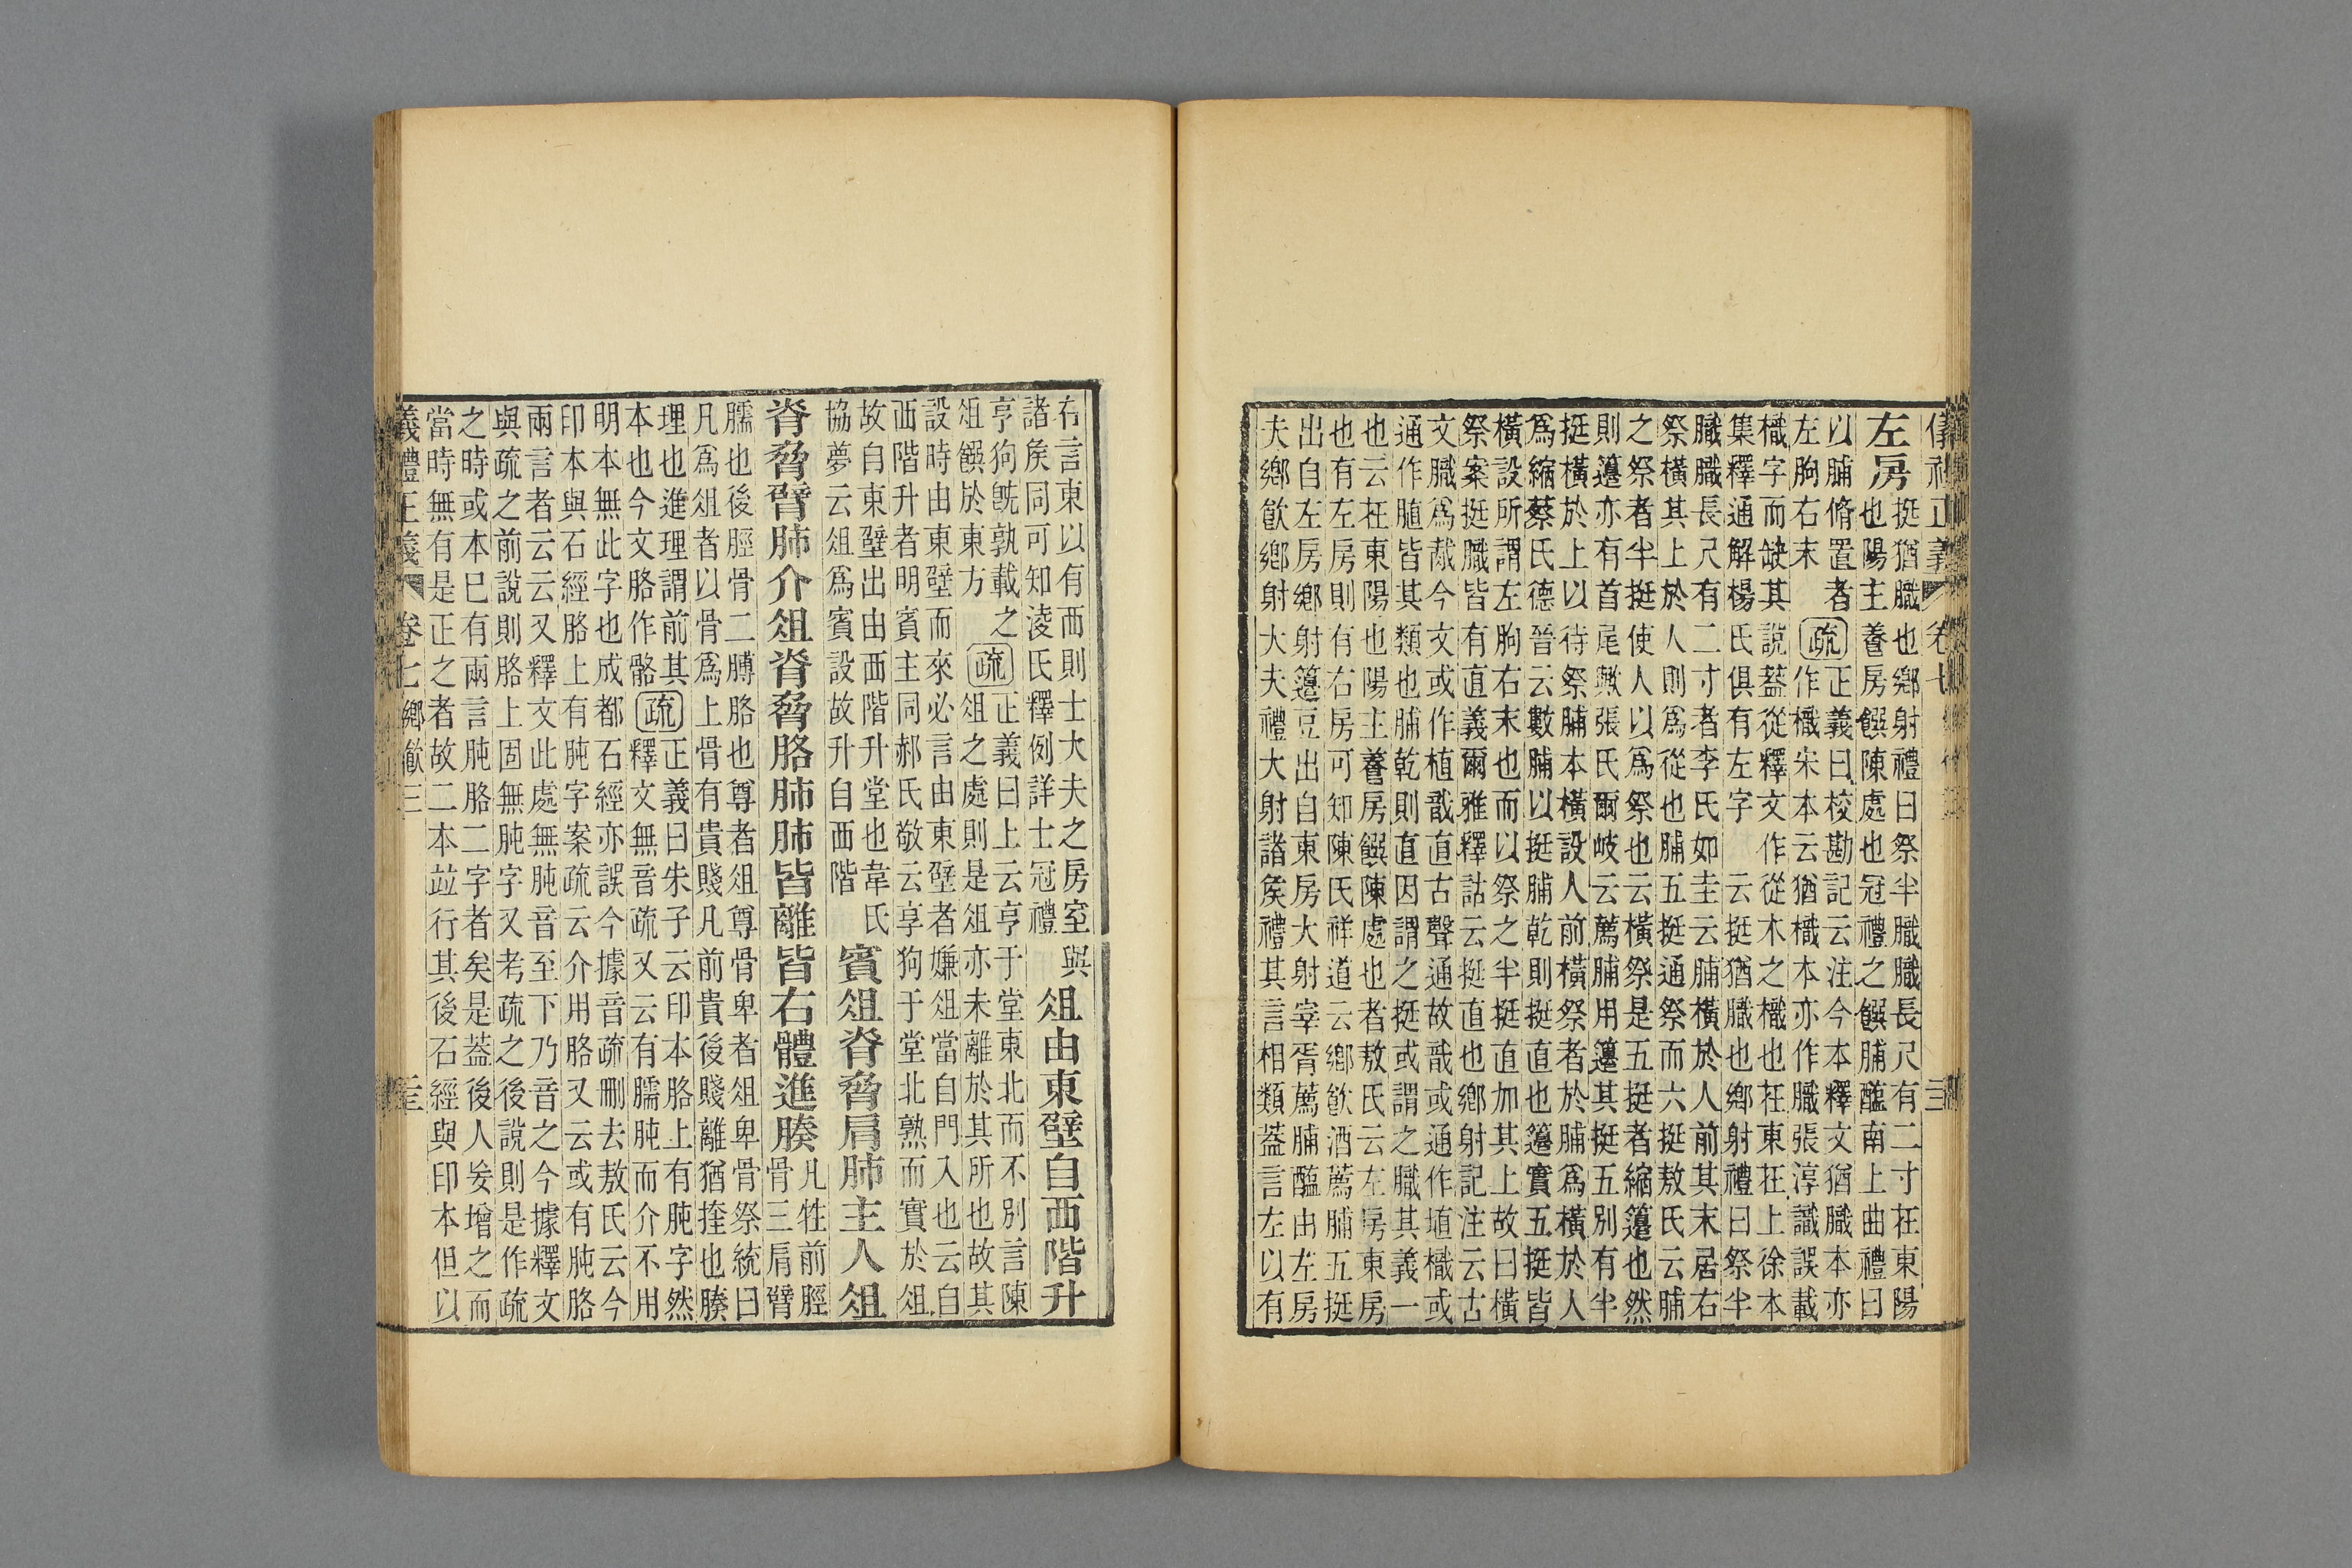 儀禮正義 卷七
左房
挺猶膱也鄉射禮曰祭半膱膱長尺有二寸在東陽
也陽主養房饌陳處也冠禮之饌脯醢南上曲禮曰
以脯脩置者
左朐右末
疏
正義曰校勘記云注今本釋文猶膱本亦
作樴宋本云猶樴本亦作膱張淳識誤載
樴字而缺其說蓋從釋文作從木之樴也在東在上徐本
集釋通解楊氏俱有左字 云挺猶膱也鄉射禮曰祭半
膱膱長尺有二寸者李氏如圭云脯橫於人前其末居右
祭橫其上於人則爲從也脯五挺通祭而六挺敖氏云脯
之祭者半挺使人以爲祭也云橫祭是五挺者縮籩也然
則籩亦有首尾歟張氏爾岐云薦脯用籩其挺五別有半
挺橫於上以待祭脯本橫設人前橫祭者於脯爲橫於人
爲縮蔡氏德晉云數脯以挺脯乾則挺直也籩實五挺皆
橫設所謂左朐右末也而以祭之半挺直加其上故曰橫
祭案挺膱皆有直義爾雅釋詁云挺直也鄉射記注云古
文膱爲胾今文或作植胾直古聲通故胾或通作埴樴或
通作皆其類也脯乾則直因謂之挺或謂之膱其義一
也云在東陽也陽主養房饌陳處也者敖氏云左房東房
也有左房則有右房可知陳氏祥道云鄉飲酒薦脯五挺
出自左房鄉射籩豆出自東房大射宰胥薦脯醢由左房
夫鄉飲鄉射大夫禮大射諸侯禮其言相類蓋言左以有
右言東以有西則士大夫之房室與
諸矦同可知淩氏釋例詳士冠禮
俎由東壁自西階升
亨狗旣孰載之
俎饌於東方
疏
正義曰上云亨于堂東北而不別言陳
俎之處則是俎亦未離於其所也故其
設時由東壁而來必言由東壁者嫌俎當自門入也云自
西階升者明賓主同郝氏敬云享狗于堂北熟而實於俎
故自東壁出由西階升堂也韋氏
協夢云俎爲賓設故升自西階
賓俎脊脅肩肺主人俎
脊脅臂肺介俎脊脅胳肺肺皆離皆右體進腠
凡牲前脛
骨三肩臂
臑也後脛骨二膊胳也尊者俎尊骨卑者俎卑骨祭統曰
凡爲俎者以骨爲上骨有貴賤凡前貴後賤離猶㨒也腠
理也進理謂前其
本也今文胳作骼
疏
正義曰朱子云印本胳上有肫字然
釋文無音疏又云有臑肫而介不用
明本無此字也成都石經亦誤今據音疏刪去敖氏云今
印本與石經胳上有肫字案疏云介用胳又云或有肫胳
兩言者云云又釋文此處無肫音至下乃音之今據釋文
與疏之前說則胳上固無肫字又考疏之後說則是作疏
之時或本巳有兩言肫胳二字者矣是蓋後人妄增之而
當時無有是正之者故二本並行其後石經與印本但以
義禮正義 卷七 鄉飲三